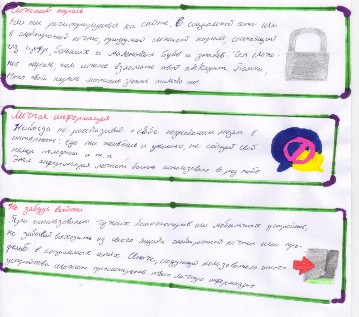 Сложный пароль
Если вы регистрируетесь на сайте, в социальной сети или
в электронной почте, придумай сложный пароль, состоящий
из цифр, больших и маленьких букв и знаков. Чем слож-
нее пароль, тем сложнее взломать твой аккаунт. Помни
что твой пароль можешь знать только ты.
Личная информация
Никогда не рассказывай о себе незнакомым людям в
интернете: где ты живёшь и учишься, не сообщай свой
номер телефона и т.д.
Эта информация может быть использована во вред тебе
Не забудь выйти
При использовании чужих компьютеров или мобильных устройств,
не забывай выходить из своего ящика электронной почты или про-
филей в социальных сетях. Иначе, следующий пользователь этого
устройства сможет просмотреть твою личную информацию